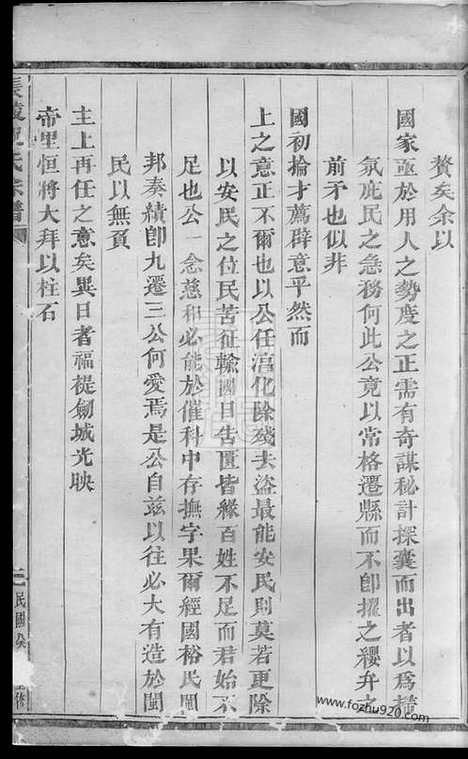 贅矣余以
國家亟於用人之勢度之正需有奇謀秘計探囊而出者以爲掃
氛庇民之急務何此公竟以常格遷縣而不卽擢之纓弁之
前矛也似非
國初掄才薦辟意乎然而
上之意正不爾也以公任淯化除殘去盜最能安民則莫若更除
以安民之位民苦征輸國日告匱皆緣百姓不足而君始不
足也公一念慈和必能於催科中存撫字果爾經國裕民閩
邦奏績卽九遷三公何愛焉是公自兹以往必大有造於閩
民以無負
主上再任之意矣異日者福提劒城光映
帝里恒將大拜以柱石
氏宗譜
民國
修
www.fozhu920.com